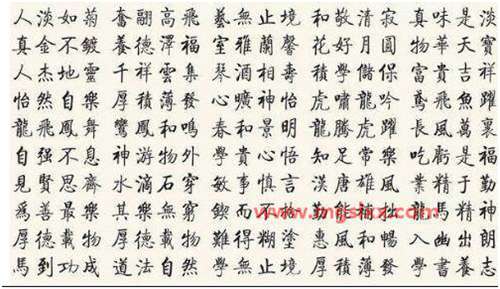 人淡如菊 奮翮高飛 藝無止境 和敬清寂 真味是淡
真金不鍍 養德澤福 室雅蘭馨 花好月圓 物華天寶
人杰地靈 千祥雲集 琴酒相壽 積學儲保 富貴吉祥
怡然自樂 厚積薄發 心曠神怡 虎嘯龍吟 鳶飛魚躍
龍飛鳳舞 鸞鳳和鳴 春和景明 龍騰虎躍 長風萬裹
自强不息 神游物外 學貴心悟 知足常樂 吃虧是福
見賢思齊 水滴石穿 敏事慎言 漢唐雄風 業精于勤
為善最樂 其樂無窮 鍥而不捨 勤能補拙 龍馬精神
厚德載物 厚德載物 難得糊塗 惠風和暢 入幽出朗
馬到功成 道法自然 學無止境 厚積薄發 學書養志